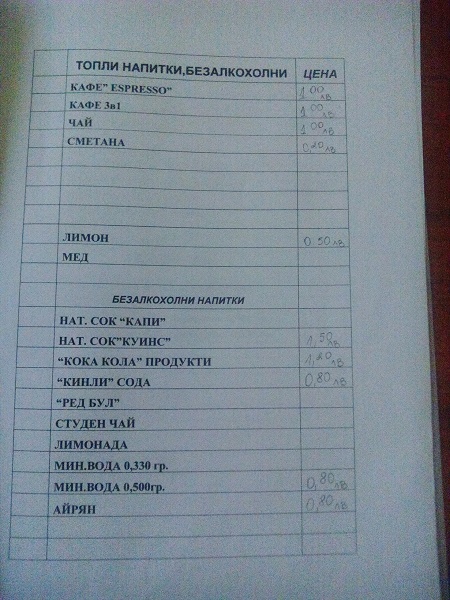 ТОПЛИ НАПИТКИ,БЕЗАЛКОХОЛНИ ЦЕНА
КАФЕ" ESPRESSO" 1 00 лв
КАФЕ 3в1 1 00 лв
ЧАЙ 1 00 лв
СМЕТАНА 0,20 лв
ЛИМОН 0.50 лв
МЕД
БЕЗАЛКОХОЛНИ НАПИТКИ
НАТ. СОК "КАПИ"
НАТ. СОК"КУИНС" 1,50 лв
"КОКА КОЛА" ПРОДУКТИ 1,20 лв
"КИНЛИ" СОДА 0,80 лв
"РЕД БУЛ"
СТУДЕН ЧАЙ
ЛИМОНАДА
МИН.ВОДА 0,330 гр.
МИН.ВОДА 0,500гр. 0,80 лв
АЙРЯН 0,80 лв